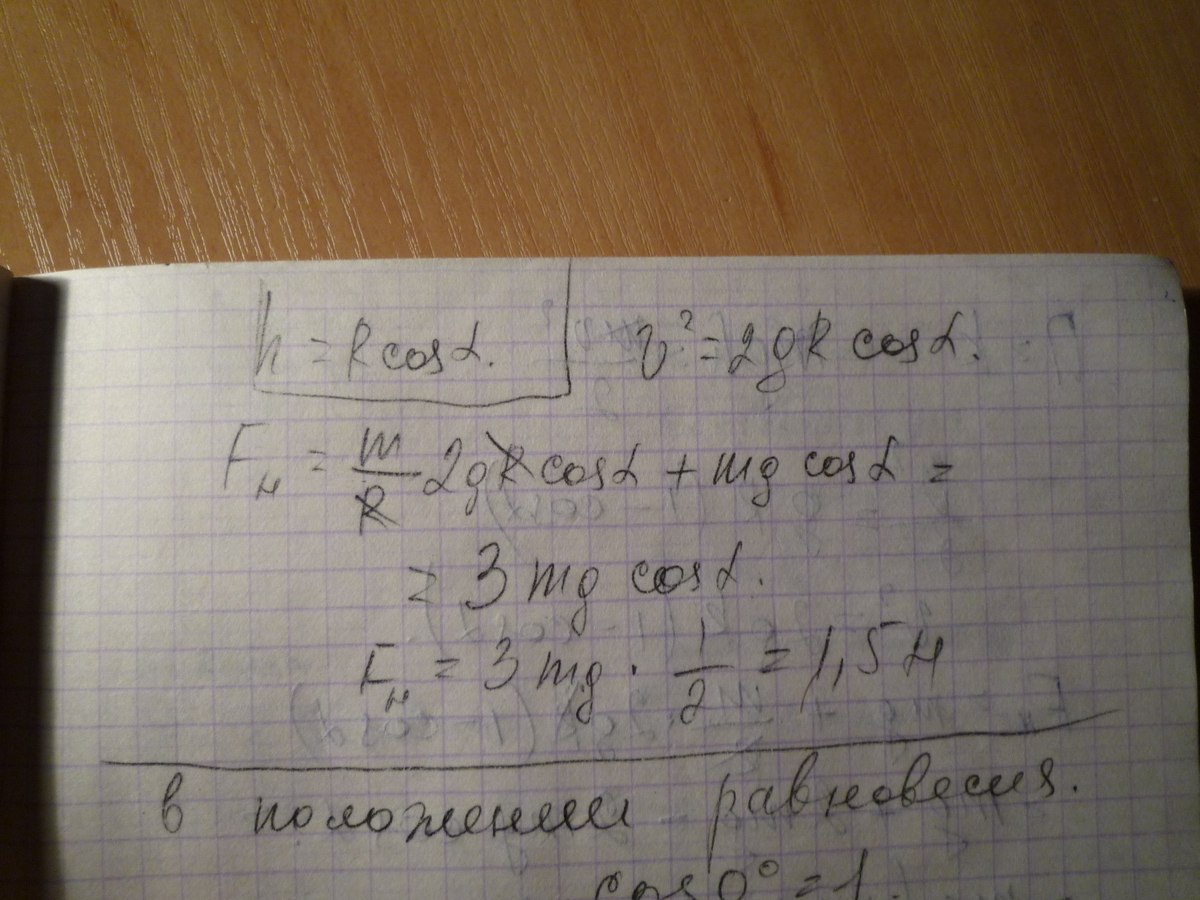 h = R cos α.   v² = 2gR cos α.
Fн = m/R 2gR cos α + mg cos α =
= 3 mg cos α.
Fн = 3 mg · 1/2 = 1,5 Н
в положении равновесия.
cos 0° = 1.